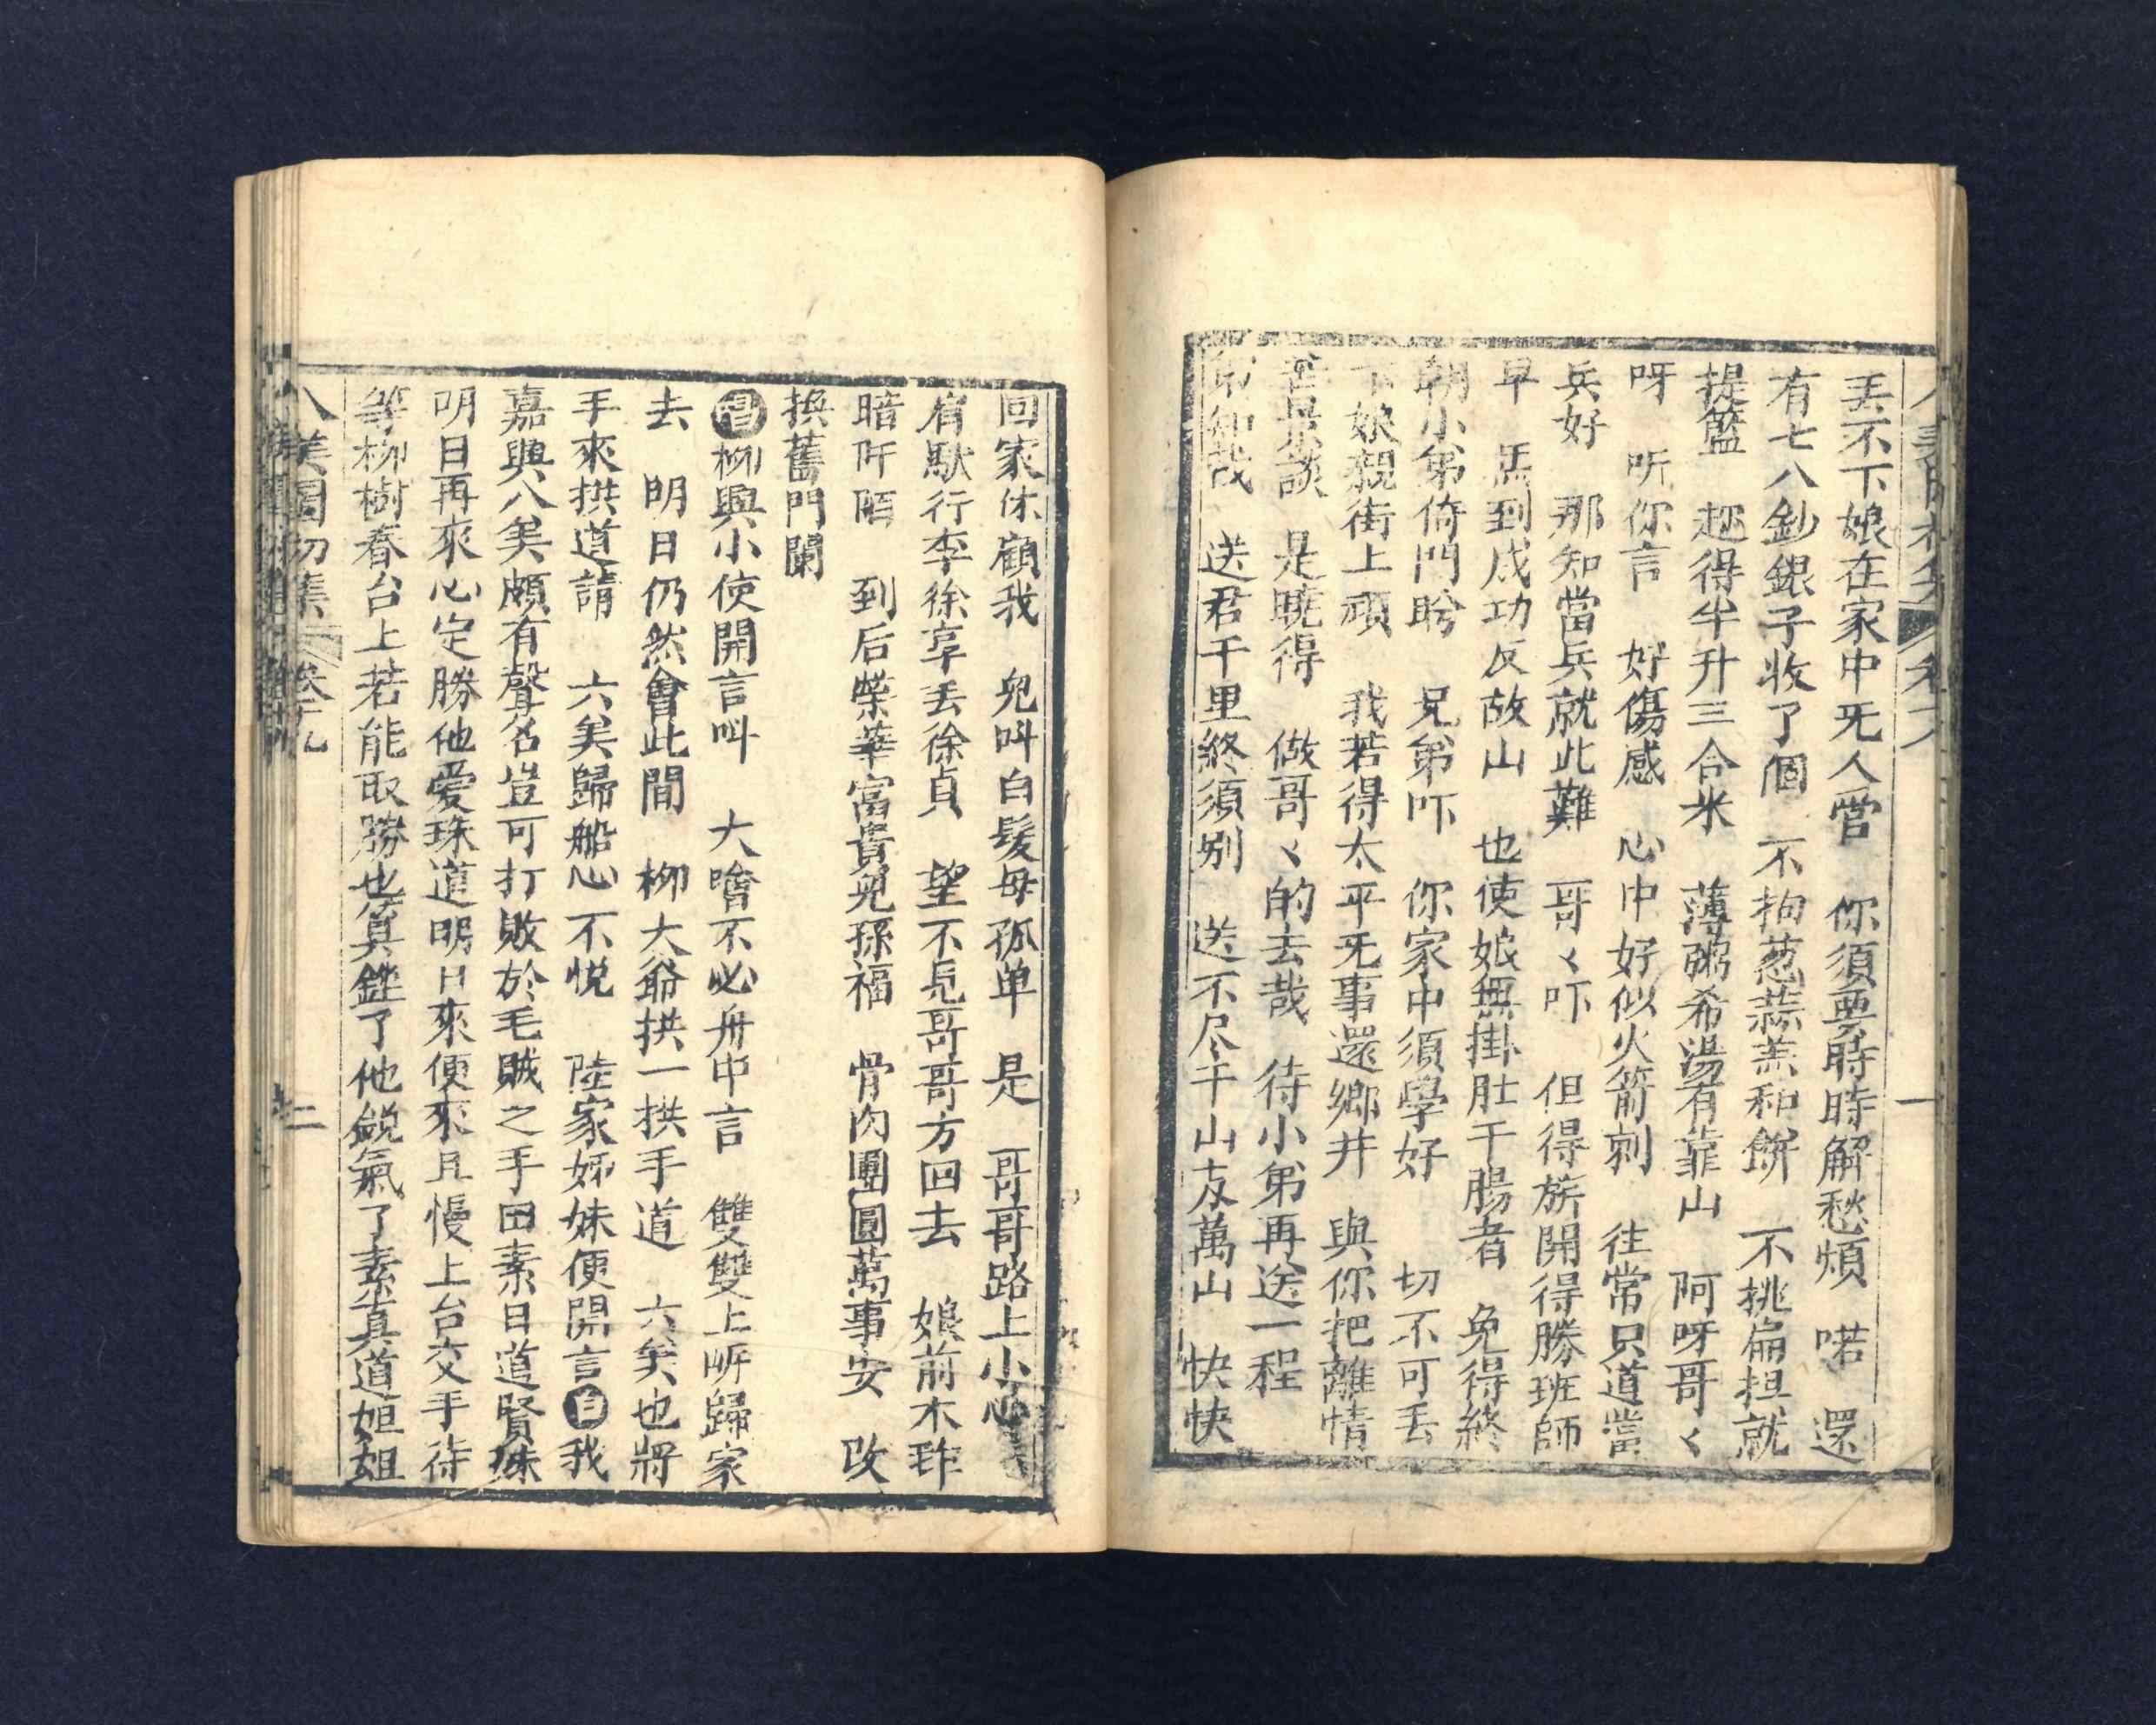 丢不下娘在家中旡人當　你須要時時解愁煩　喏　還
有七八釖銀子收了個　不拘葱蒜羔和餅　不挑扁担就
提籃　趂得半升三合米　薄粥希湯有靠山　阿呀哥〻
呀　听你言　好傷感　心中好似火箭刺　往常只道當
兵好　那知當兵就此難　哥〻吓　但得旂開得勝班師
早　馬到成功反故山　也使娘無掛肚干腸者　免得終
朝小弟倚門盻　兄弟吓　你家中須學好　切不可丢
下娘親街上頑　我若得太平旡事還鄉井　與你把離情
苦景談　是曉得　做哥〻的去哉　待小弟再送一程
弟知哉　送君千里終須別　送不尽千山友萬山　快快
回家休顧我　兒叫白髮母孤单　是　哥哥路上小心
肩馱行李徐享丢徐貞　望不見哥哥方回去　娘前木
暗阡陌　到后榮華富貴兒孫福　骨肉團圓萬事安　改
換舊門闌
唱柳與小使開言叫　大噲不必舟中言　雙雙上岍歸家
去　明日仍然會此間　柳大爺拱一拱手道　六美也將
手來拱道請　六美歸船心不悅　陸家姊妹便開言白我
嘉興八美頗有聲名豈可打敗於毛賊之手田素日道賢妹
明日再來心定勝他愛珠道明日來便來且慢上台交手待
等柳樹春台上若能取勝也算銼了他鋭氣了素真道姐姐
八美圖初集　卷十九　二